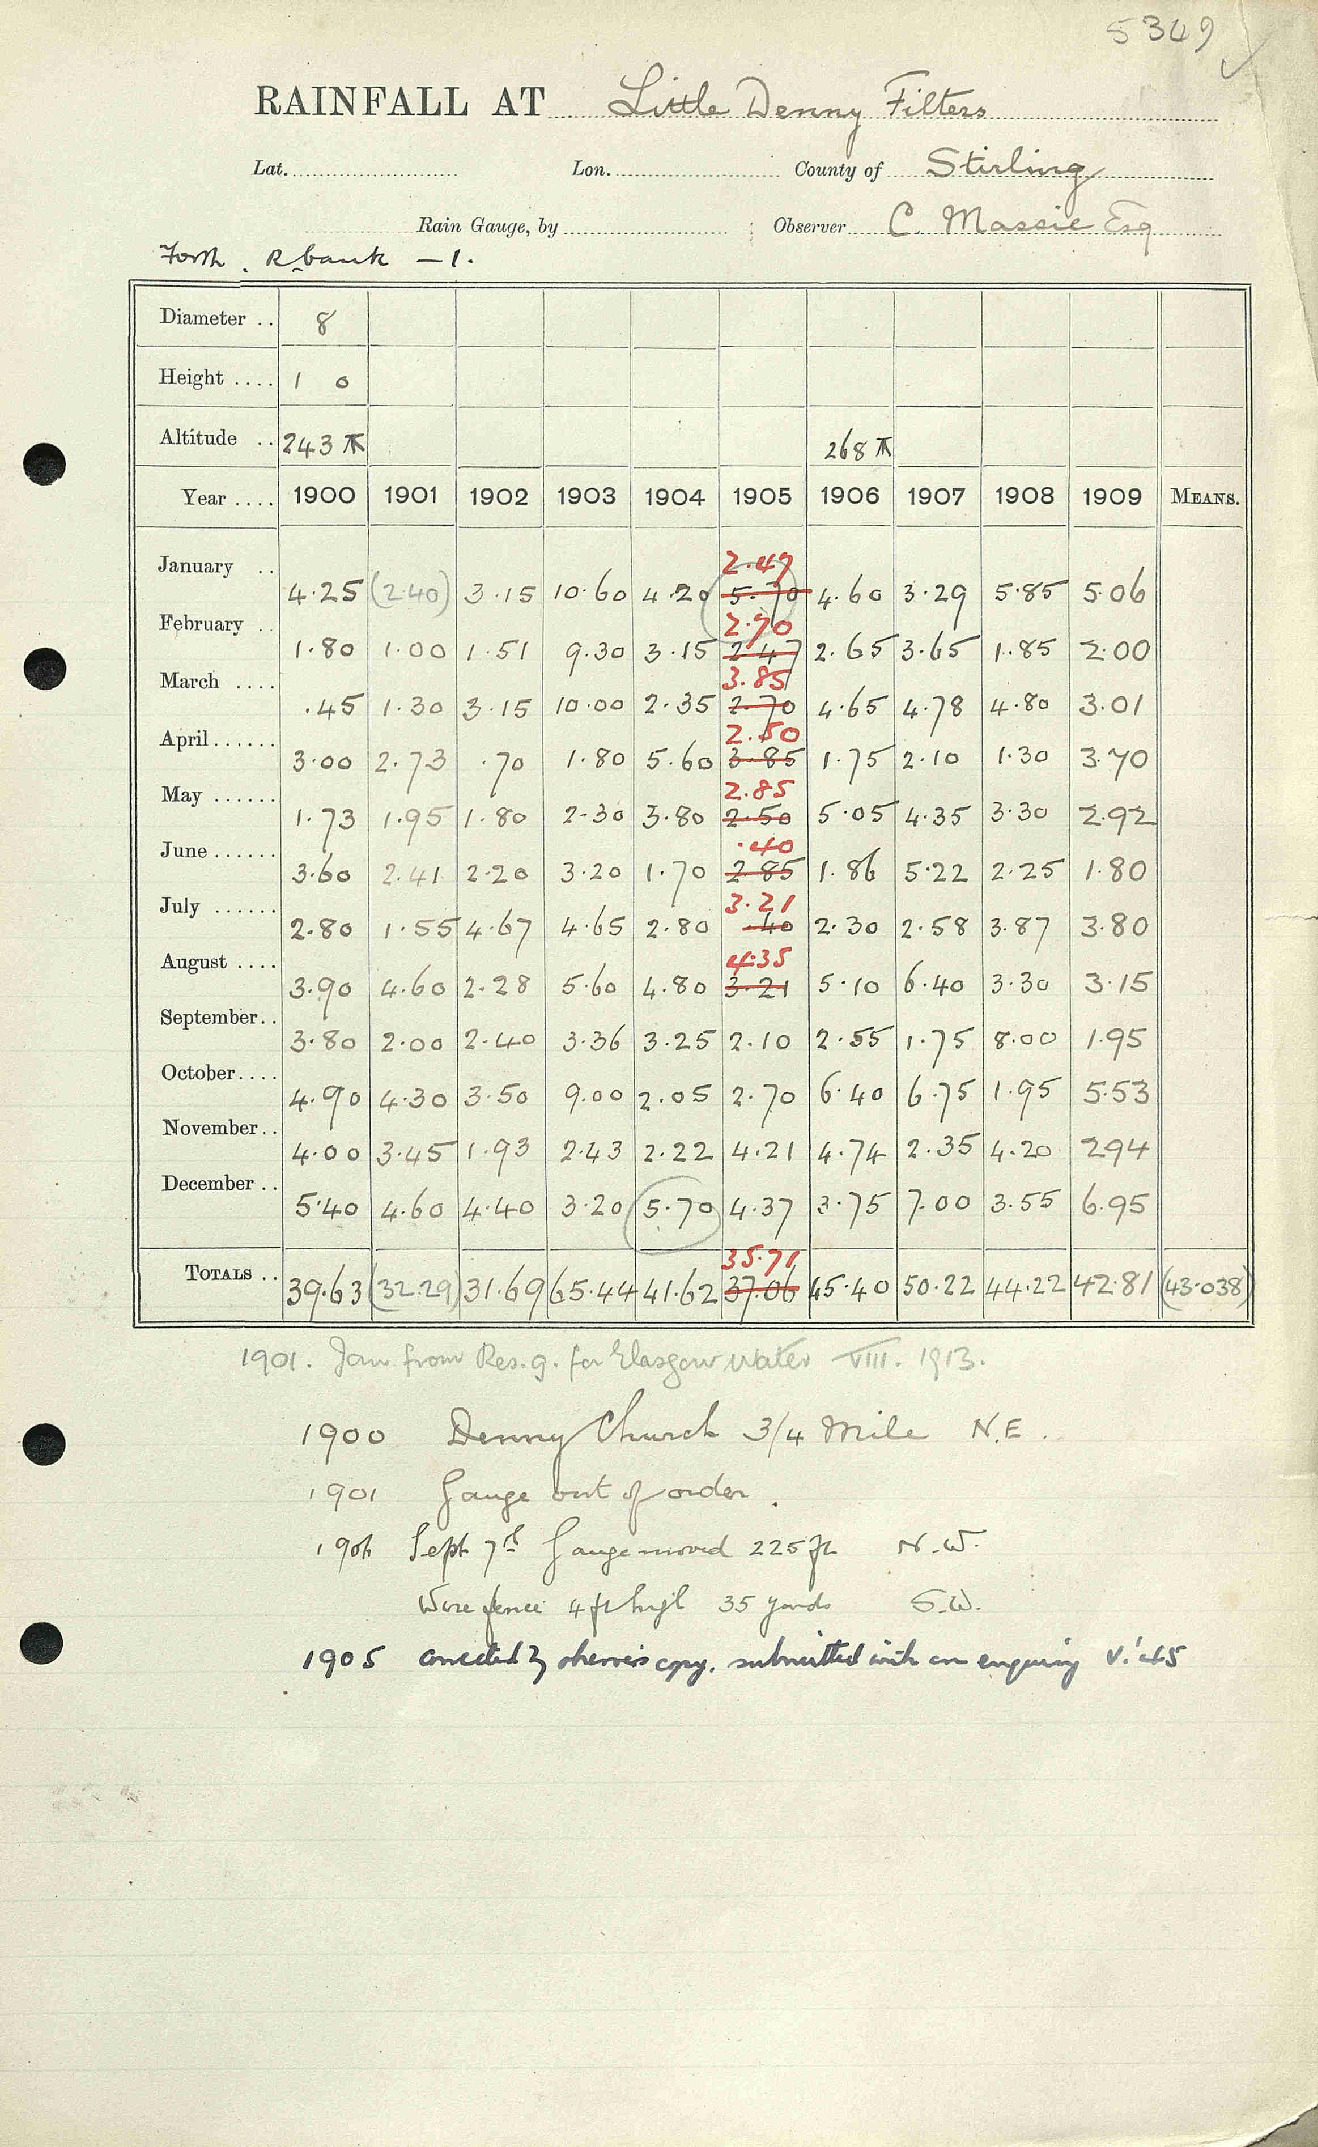 5349
RAINFALL AT Little Denny Filters
Lat. Lon. County of Stirling
Rain Gauge, by Observer C. Massie Esq
Forth. R. bank — 1.
Diameter .. 8
Height .... 1 0
Altitude .. 243 268
Year .... 1900 1901 1902 1903 1904 1905 1906 1907 1908 1909 MEANS.
2.47
January .. 4.25 (2.40) 3.15 10.60 4.20 5.70 4.60 3.29 5.85 5.06
2.70
February .. 1.80 1.00 1.51 9.30 3.15 2.47 2.65 3.65 1.85 2.00
3.85
March .... .45 1.30 3.15 10.00 2.35 2.70 4.65 4.78 4.80 3.01
2.50
April ...... 3.00 2.73 .70 1.80 5.60 3.85 1.75 2.10 1.30 3.70
2.85
May ...... 1.73 1.95 1.80 2.30 3.80 2.50 5.05 4.35 3.30 2.92
.40
June ...... 3.60 2.41 2.20 3.20 1.70 2.85 1.86 5.22 2.25 1.80
3.21
July ...... 2.80 1.55 4.67 4.65 2.80 .40 2.30 2.58 3.87 3.80
4.35
August .... 3.90 4.60 2.28 5.60 4.80 3.21 5.10 6.40 3.30 3.15
September .. 3.80 2.00 2.40 3.36 3.25 2.10 2.55 1.75 8.00 1.95
October .... 4.90 4.30 3.50 9.00 2.05 2.70 6.40 6.75 1.95 5.53
November .. 4.00 3.45 1.93 2.43 2.22 4.21 4.74 2.35 4.20 2.94
December .. 5.40 4.60 4.40 3.20 5.70 4.37 3.75 7.00 3.55 6.95
35.71
TOTALS .. 39.63 (32.29) 31.69 65.44 41.62 37.06 45.40 50.22 44.22 42.81 (43.038)
1901. Jan from Res. g. for Glasgow Water VIII. 1913.
1900 Denny Church 3/4 Mile N.E.
1901 Gauge out of order.
1906 Sept 7th Gauge moved 225 ft N.W.
Wire fence 4 ft high 35 yards S.W.
1905 corrected by observer's copy, submitted with an enquiry V.'45